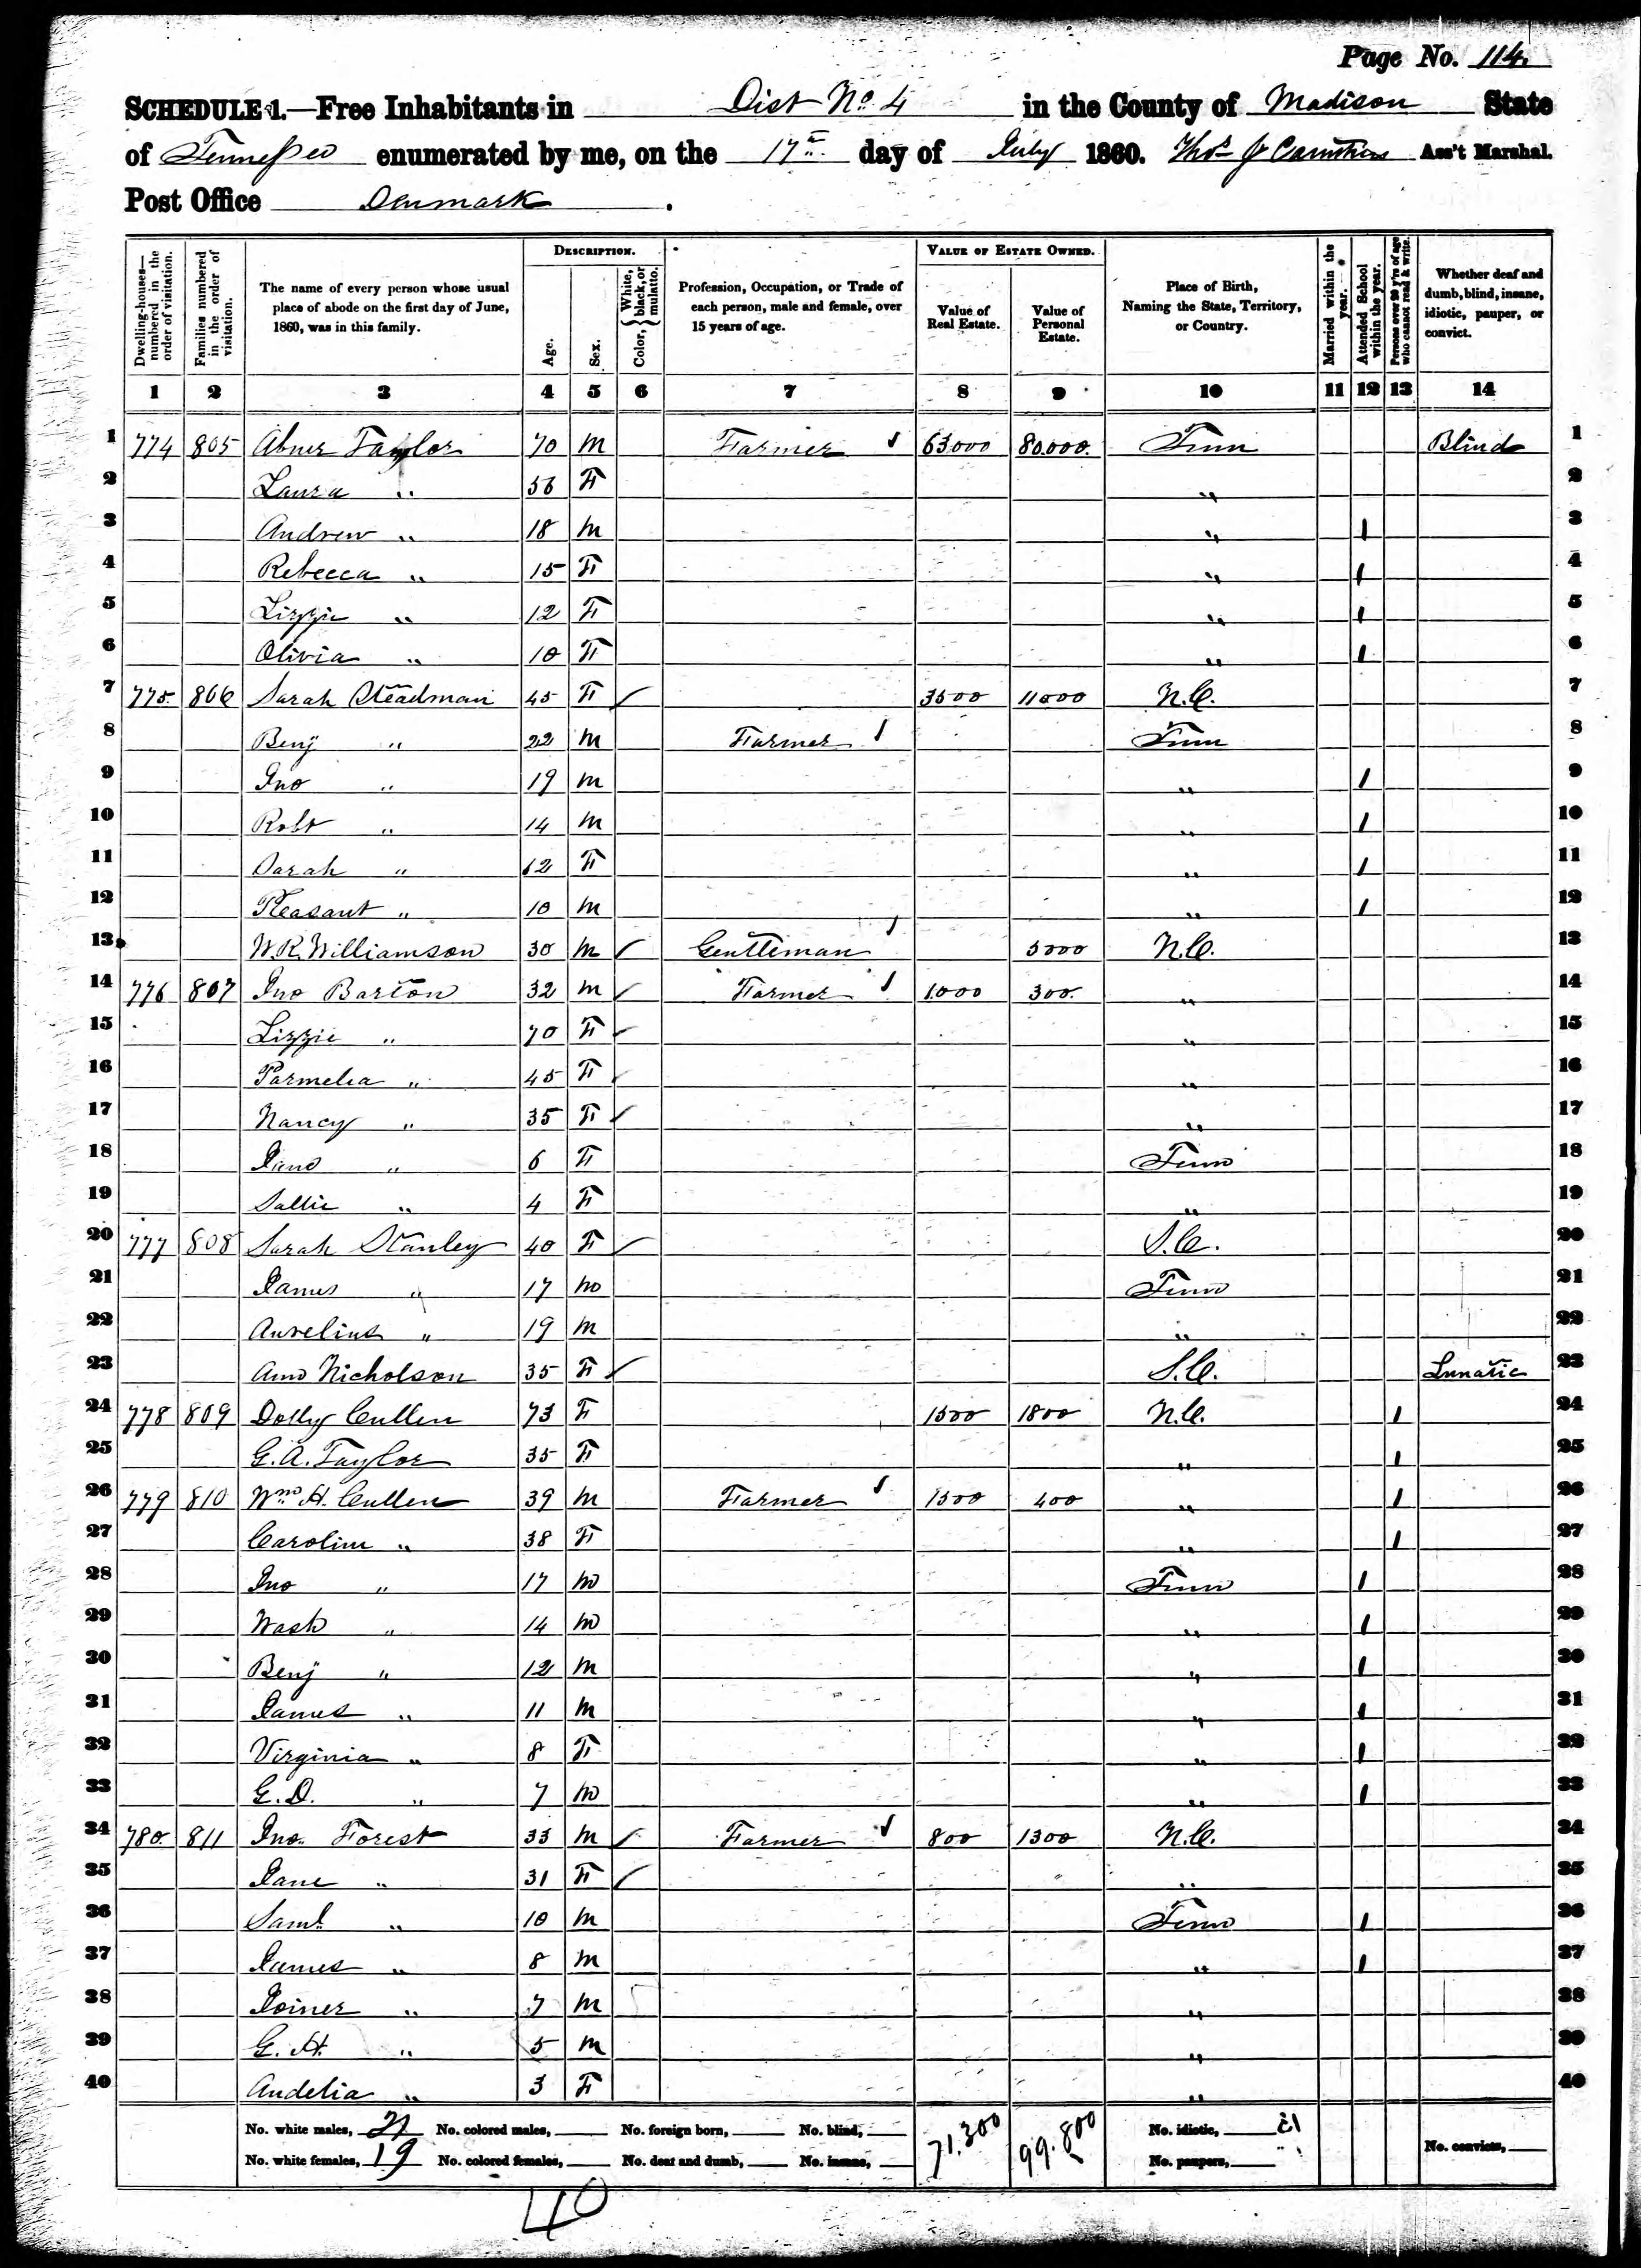 Page No. 114
SCHEDULE 1.—Free Inhabitants in Dist No. 4 in the County of Madison State
of Tennessee enumerated by me, on the 17th day of July 1860. Thos J Caruthers Ass't Marshal.
Post Office Denmark.
Dwelling-houses—numbered in the order of visitation.
Families numbered in the order of visitation.
The name of every person whose usual place of abode on the first day of June, 1860, was in this family.
DESCRIPTION.
Age.
Sex.
Color, { White, black, or mulatto.
Profession, Occupation, or Trade of each person, male and female, over 15 years of age.
VALUE OF ESTATE OWNED.
Value of Real Estate.
Value of Personal Estate.
Place of Birth, Naming the State, Territory, or Country.
Married within the year.
Attended School within the year.
Persons over 20 y'rs of age who cannot read & write.
Whether deaf and dumb, blind, insane, idiotic, pauper, or convict.
1 2 3 4 5 6 7 8 9 10 11 12 13 14
1 774 805 Abner Taylor 70 M Farmer 63000 80.000. Tenn Blind 1
2 Laura " 56 F " 2
3 Andrew " 18 M " 1 3
4 Rebecca " 15 F " 1 4
5 Lizzie " 12 F " 1 5
6 Olivia " 10 F " 1 6
7 775 806 Sarah Steadman 45 F 3500 11000 N.C. 7
8 Benj " 22 M Farmer Tenn 8
9 Jno " 19 M " 1 9
10 Robt " 14 M " 1 10
11 Sarah " 12 F " 1 11
12 Pleasant " 10 M " 1 12
13 W.R. Williamson 30 M Gentleman 5000 N.C. 13
14 776 807 Jno Barton 32 M Farmer 1000 300. " 14
15 Lizzie " 70 F " 15
16 Parmelia " 45 F " 16
17 Nancy " 35 F " 17
18 Jane " 6 F Tenn 18
19 Sallie " 4 F " 19
20 777 808 Sarah Stanley 40 F S.C. 20
21 James " 17 M Tenn 21
22 Aurelius " 19 M " 22
23 Ann Nicholson 35 F S.C. Lunatic 23
24 778 809 Dolly Cullen 73 F 1500 1800 N.C. 1 24
25 G.A. Taylor 35 F " 1 25
26 779 810 Wm H. Cullen 39 M Farmer 1500 400 " 1 26
27 Caroline " 38 F " 1 27
28 Jno " 17 M Tenn 1 28
29 Wash " 14 M " 1 29
30 Benj " 12 M " 1 30
31 James " 11 M " 1 31
32 Virginia " 8 F " 1 32
33 G.D. " 7 M " 1 33
34 780 811 Jno. Forest 33 M Farmer 800 1300 N.C. 34
35 Jane " 31 F " 35
36 Saml " 10 M Tenn 1 36
37 James " 8 M " 1 37
38 Joiner " 7 M " 38
39 G.H. " 5 M " 39
40 Audelia " 3 F " 40
No. white males, 21 No. colored males, No. foreign born, No. blind, 71.300 99.800 No. idiotic,
No. white females, 19 No. colored females, No. deaf and dumb, No. insane, No. paupers, No. convicts,
40